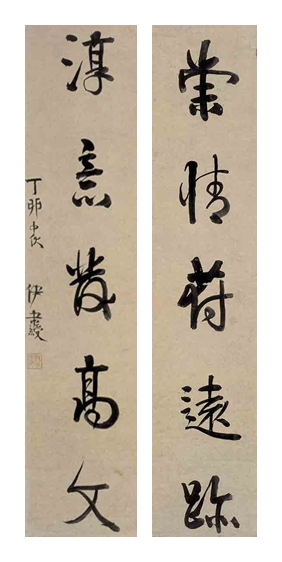 崇情符遠跡
淳意發高文
丁卯 伊秉綬